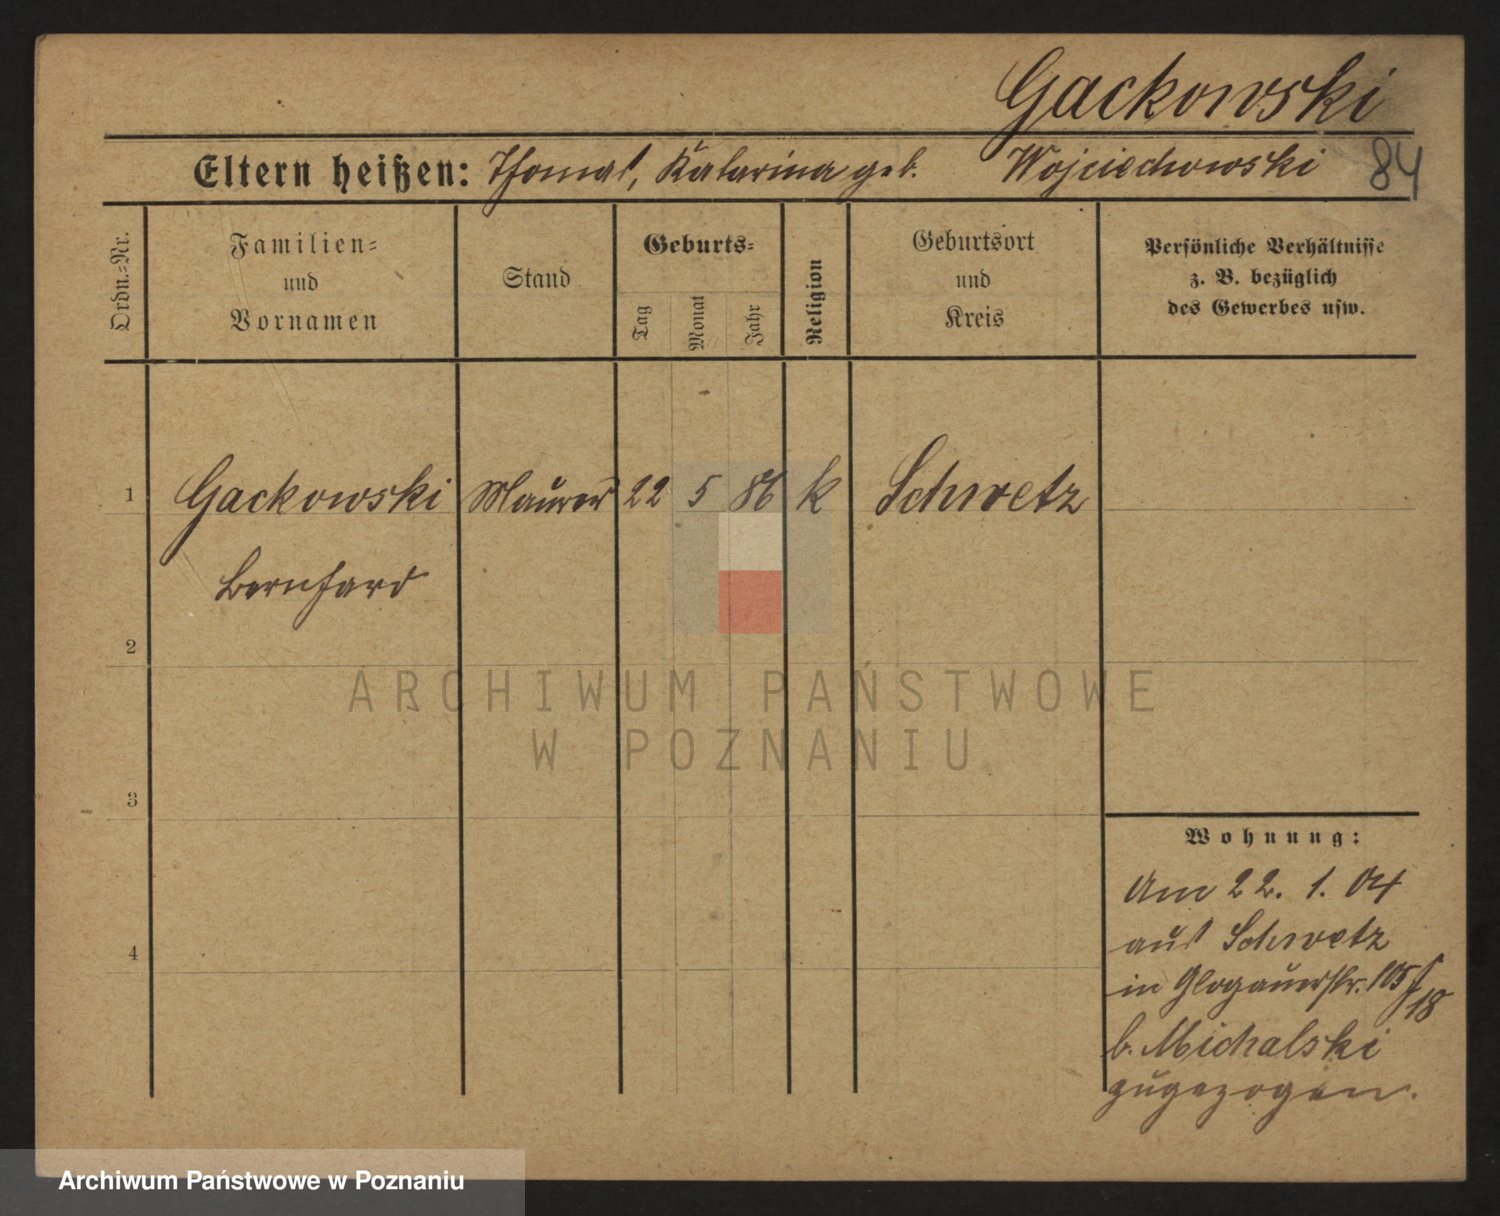 Gackowski
Eltern heißen: Thomas, Katarina geb. Wojciechowski 84
Ordn.-Nr.
Familien-
und
Vornamen
Stand
Geburts-
Tag
Monat
Jahr
Religion
Geburtsort
und
Kreis
Persönliche Verhältnisse
z. B. bezüglich
des Gewerbes usw.
1 Gackowski Maurer 22 5 86 k Schwetz
Bernhard
2
3
4
Wohnung:
Am 22. 1. 04
aus Schwetz
in Glogauerstr. 105/
18
b. Michalski
zugezogen.
ARCHIWUM PAŃSTWOWE
W POZNANIU
Archiwum Państwowe w Poznaniu